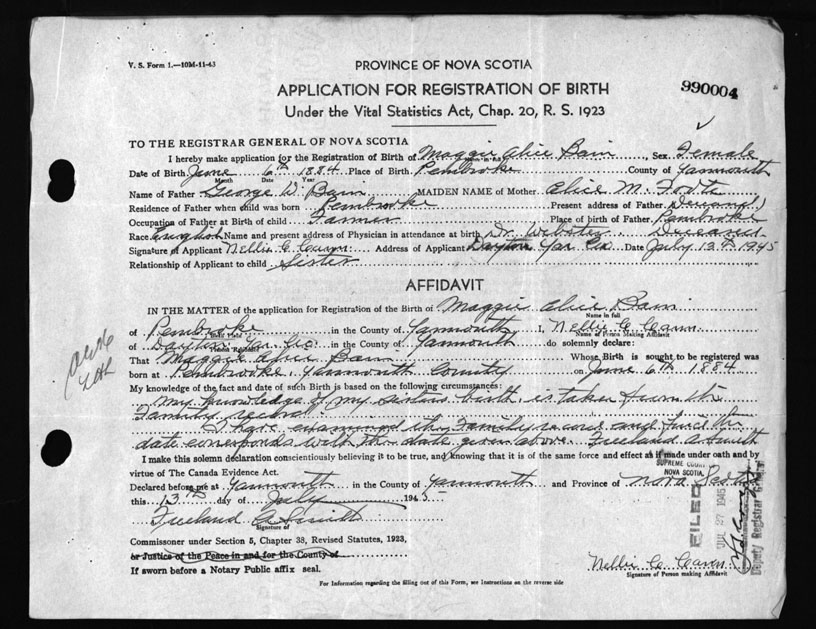 V. S. Form 1.—10M-11-43
PROVINCE OF NOVA SCOTIA
APPLICATION FOR REGISTRATION OF BIRTH
990004
Under the Vital Statistics Act, Chap. 20, R. S. 1923
TO THE REGISTRAR GENERAL OF NOVA SCOTIA
I hereby make application for the Registration of Birth of Maggie Alice Bain Sex Female
Date of Birth June 6th 1884 Place of Birth Pembroke County of Yarmouth
Month Date Year
Name of Father George W. Bain MAIDEN NAME of Mother Alice M. Foote
Residence of Father when child was born Pembroke Present address of Father Deceased
Occupation of Father at Birth of child Farmer Place of birth of Father Pembroke
Race English Name and present address of Physician in attendance at birth Dr. Webster Deceased
Signature of Applicant Nellie C. Cann Address of Applicant Dayton Yar Co Date July 13th 1945
Relationship of Applicant to child Sister
AFFIDAVIT
IN THE MATTER of the application for Registration of the Birth of Maggie Alice Bain
Name in full
of Pembroke in the County of Yarmouth I, Nellie C. Cann
Name of Person Making Affidavit
of Dayton Yar. Co. in the County of Yarmouth do solemnly declare:
That Maggie Alice Bain Whose Birth is sought to be registered was
born at Pembroke, Yarmouth County on June 6th 1884
My knowledge of the fact and date of such Birth is based on the following circumstances:
My knowledge of my sisters birth is taken from the
Family record.
I have examined the Family record and find the
date corresponds with the date given above. Freeland A. Smith
I make this solemn declaration conscientiously believing it to be true, and knowing that it is of the same force and effect as if made under oath and by
virtue of The Canada Evidence Act.
SUPREME COURT
NOVA SCOTIA
Declared before me at Yarmouth in the County of Yarmouth and Province of Nova Scotia
this 13th day of July 1945
Freeland A. Smith
Signature of
Commissioner under Section 5, Chapter 38, Revised Statutes, 1923,
or Justice of the Peace in and for the County of
If sworn before a Notary Public affix seal.
Nellie C. Cann
Signature of Person making Affidavit
FILED
JUL 27 1945
Deputy Registrar General
For Information regarding the filling out of this Form, see Instructions on the reverse side